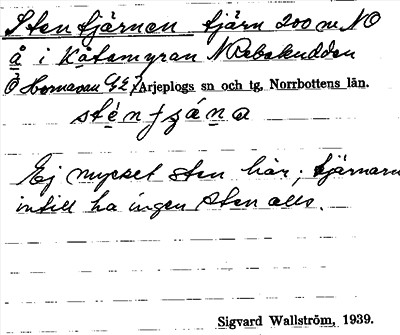 Stentjärnen tjärn 200 m NO
å i Kåtamyran N Rebakudden
Ö Hornavan GE7 Arjeplogs sn och tg, Norrbottens län.
sténtjä́na
Ej mycket sten här; tjärnarna
intill ha ingen sten alls.
Sigvard Wallström, 1939.